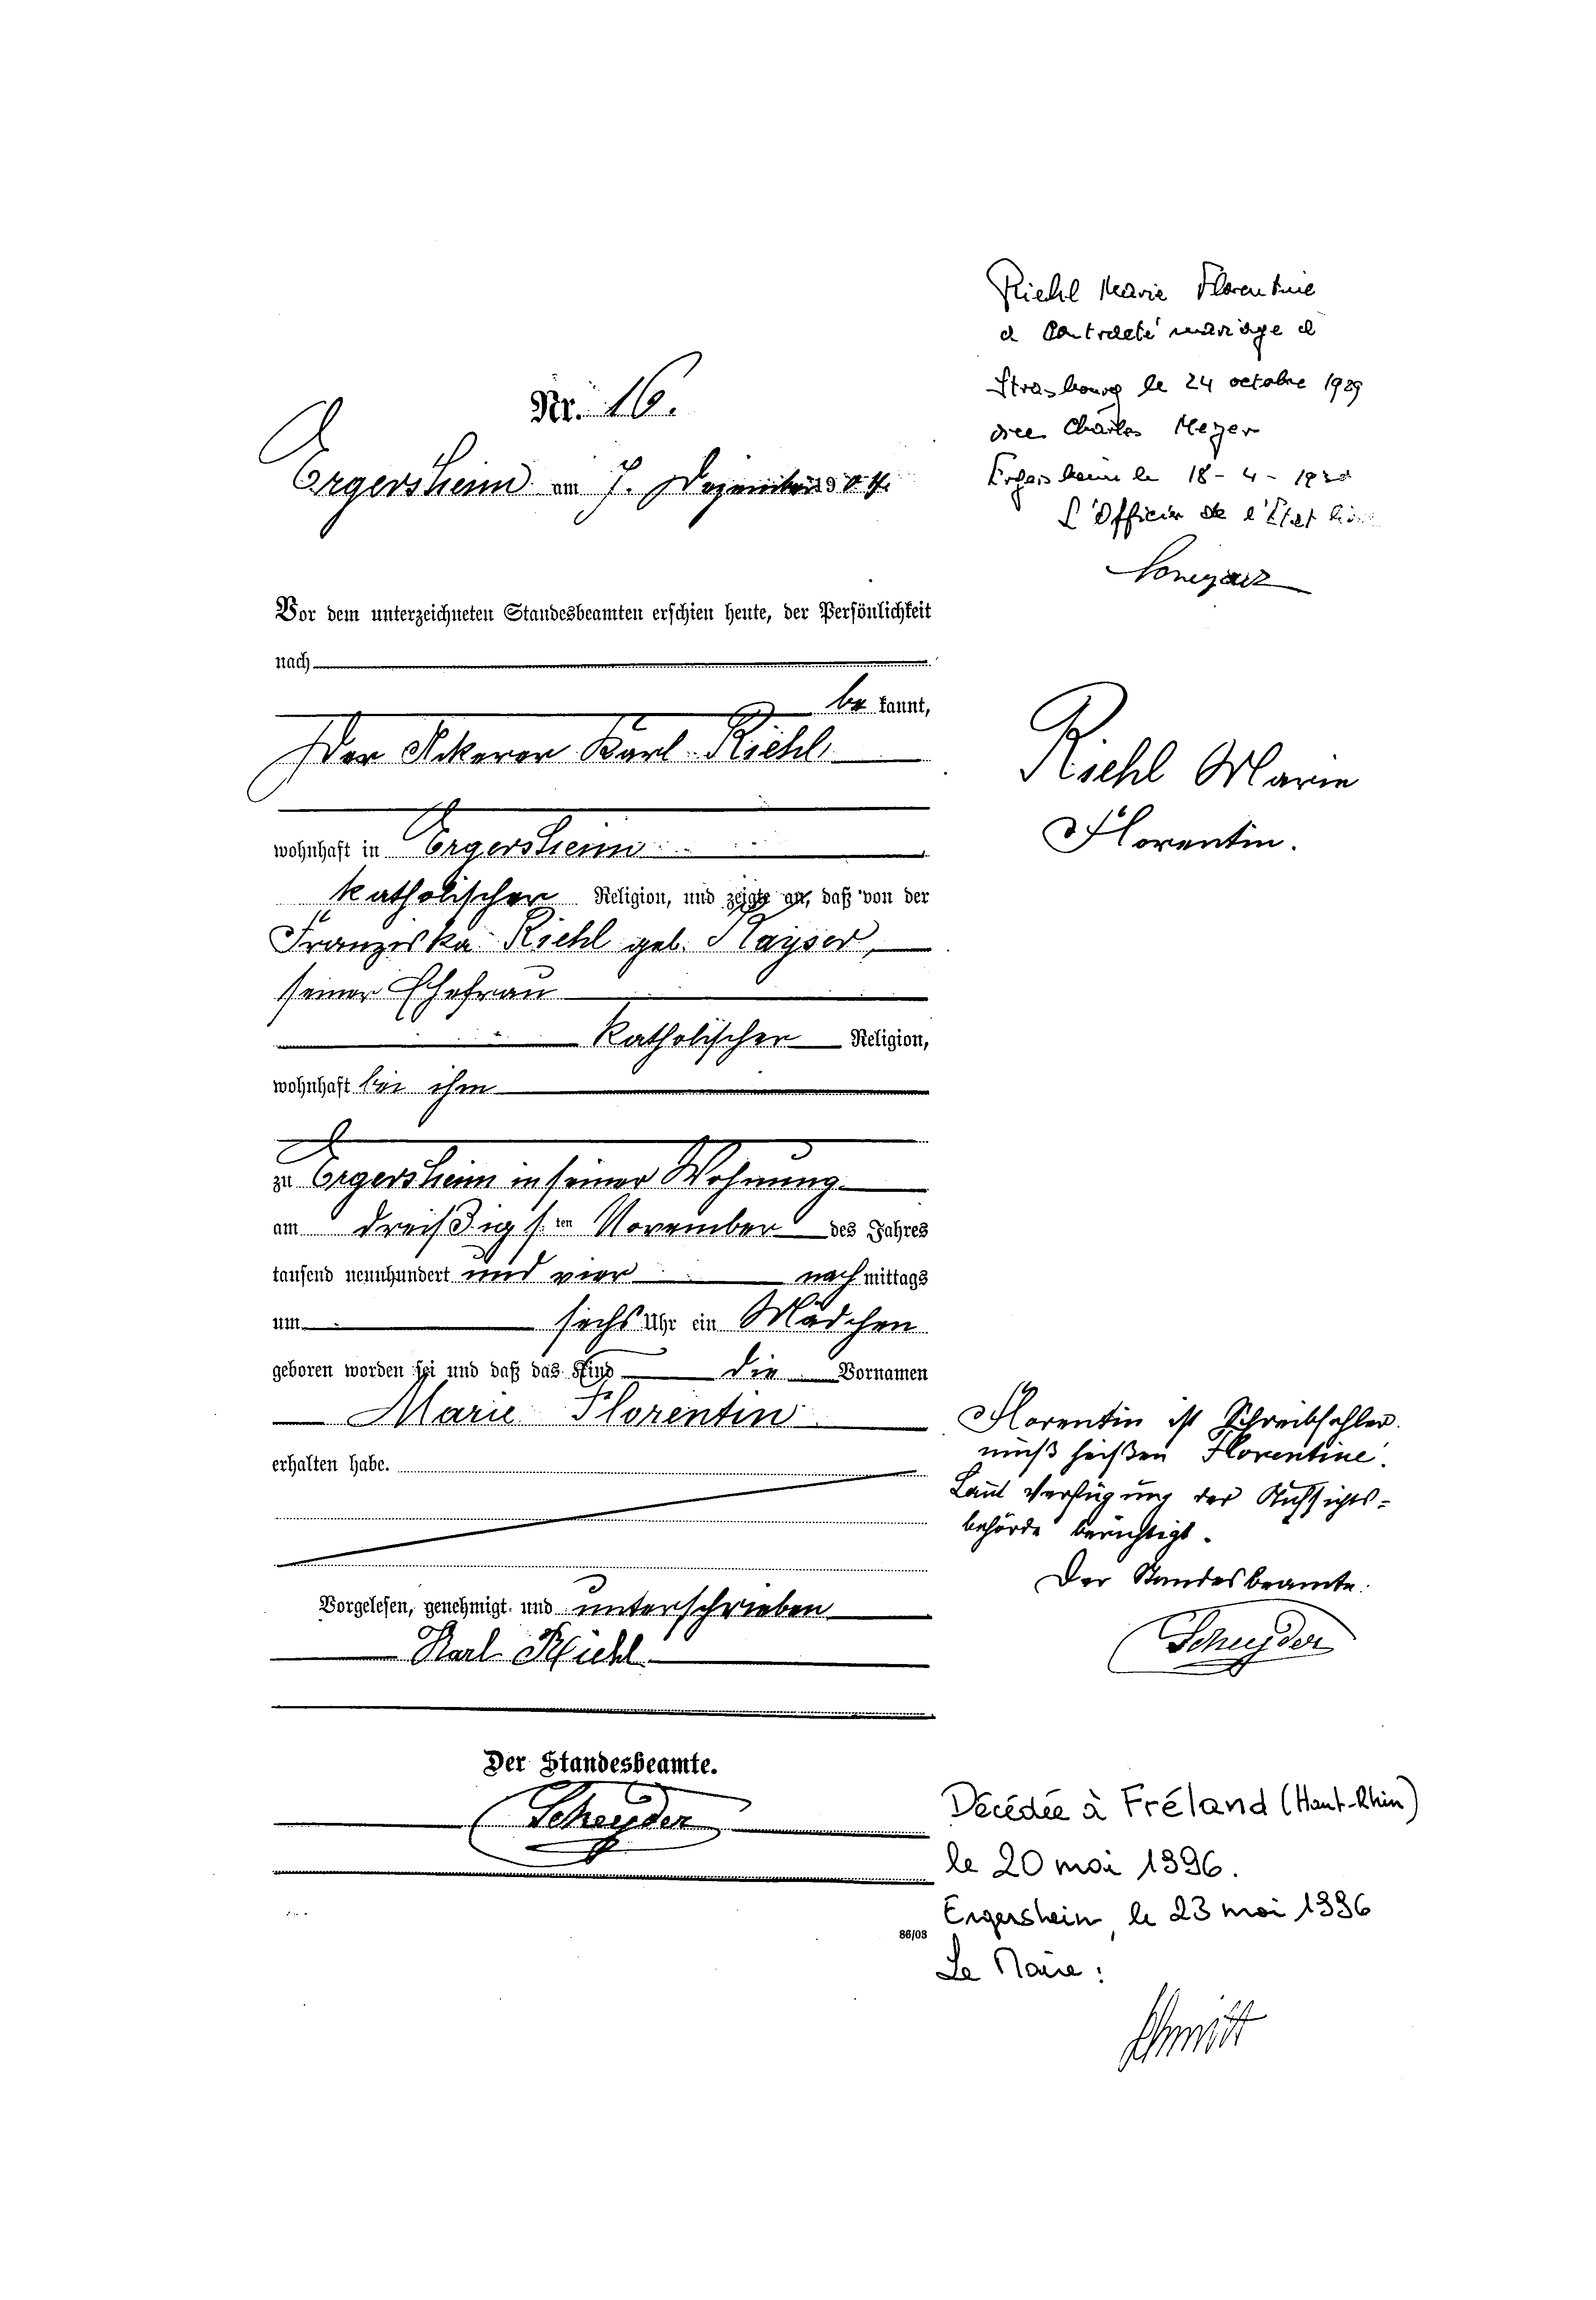 Nr. 16.
Ergersheim am 7. Dezember 1904.
Vor dem unterzeichneten Standesbeamten erschien heute, der Persönlichkeit
nach
be kannt,
Der Ackerer Karl Riehl
wohnhaft in Ergersheim
katholischer Religion, und zeigte an, daß von der
Franziska Riehl geb. Kayser,
seiner Ehefrau
katholischer Religion,
wohnhaft bei ihm
zu Ergersheim in seiner Wohnung
am dreißigs ten November des Jahres
tausend neunhundert und vier nach mittags
um sechs Uhr ein Mädchen
geboren worden sei und daß das Kind die Vornamen
Marie Florentin
erhalten habe.
Vorgelesen, genehmigt und unterschrieben
Karl Riehl
Der Standesbeamte.
Scheyder
86/03
Riehl Marie Florentine
a contracté mariage à
Strasbourg le 24 octobre 1929
avec Charles Meyer
Ergersheim le 18-4-1930
L'Officier de l'État
Riehl Marie
Florentin.
Florentin ist Schreibfehler
muß heißen Florentine.
Laut Verfügung der Aufsichts-
behörde berichtigt.
Der Standesbeamte.
Scheyder
Décédée à Fréland (Haut-Rhin)
le 20 mai 1996.
Ergersheim, le 23 mai 1996
Le Maire :
Schmitt